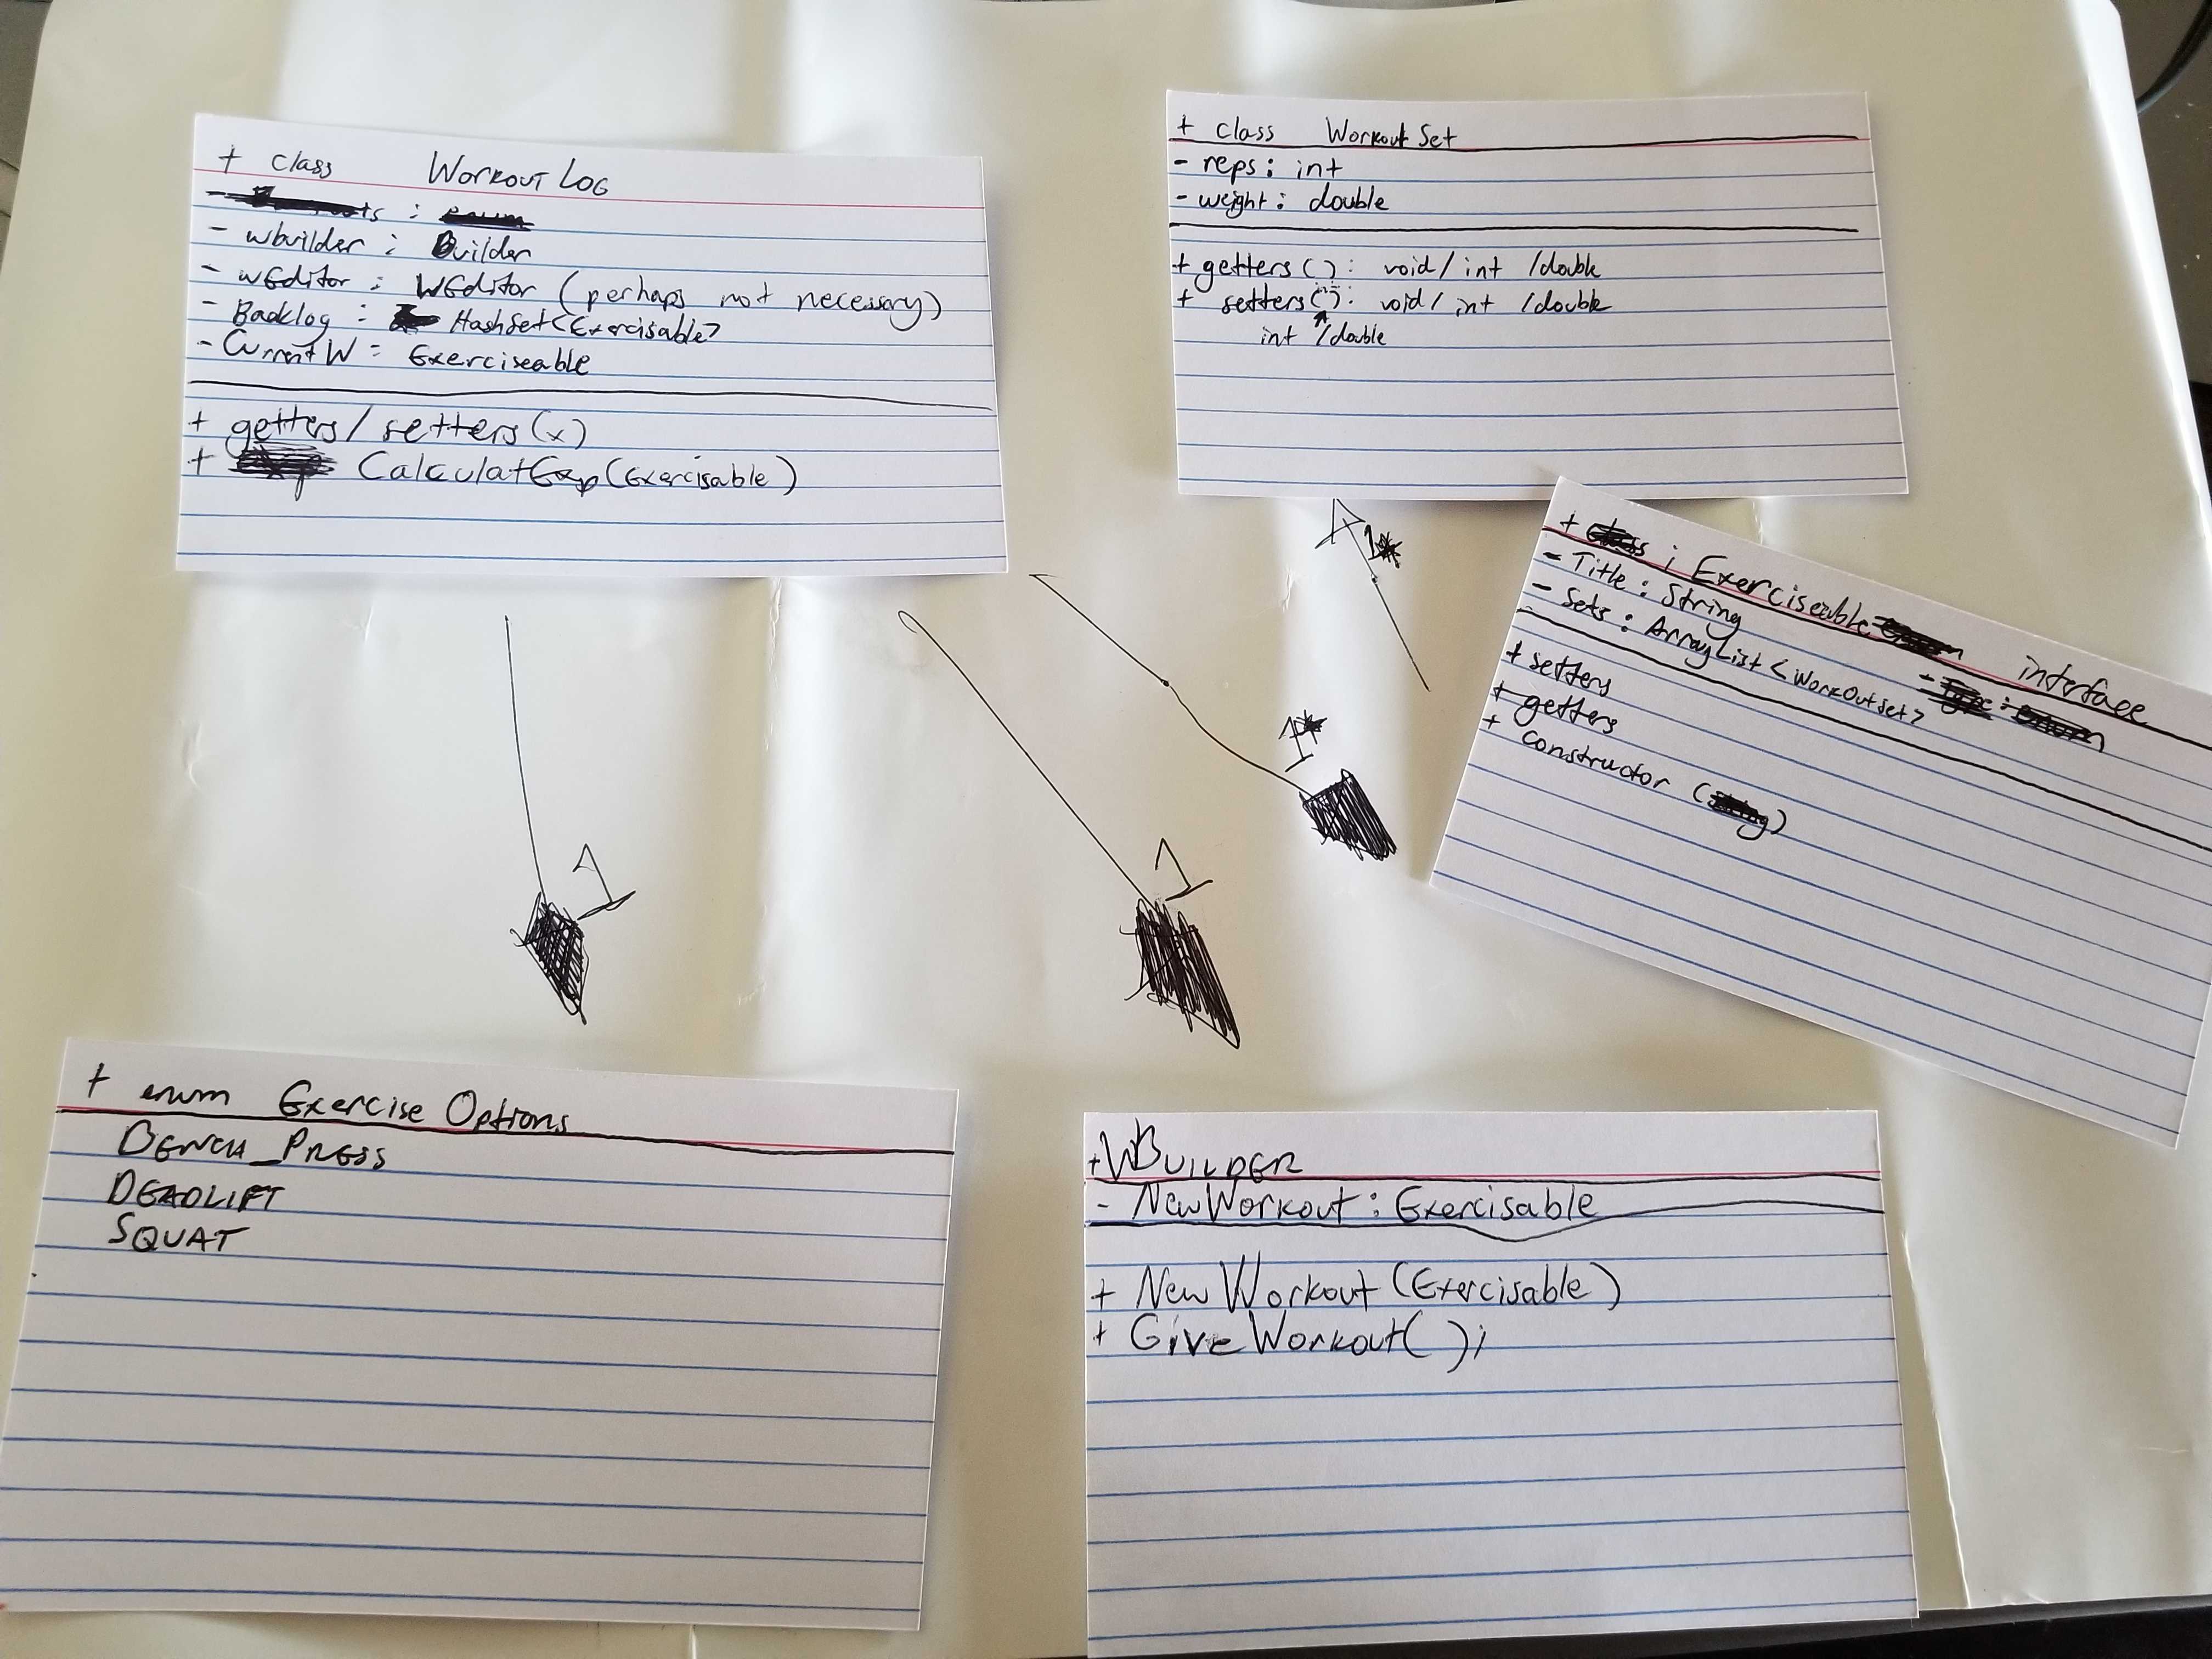 + class WORKOUT LOG
- :
- wbuilder : Builder
- wEditor : WEditor (perhaps not necessary)
- Backlog : HashSet<Exercisable>
- CurrentW = Exerciseable
+ getters / setters (x)
+ CalculatExp (Exercisable)
+ class Workout Set
- reps : int
- weight : double
+ getters ( ) : void / int / double
+ setters ( ) : void / int / double
int / double
+ i Exerciseable interface
- Title : String
- Sets : ArrayList <WorkOutset>
+ setters
+ getters
+ constructor ( )
1
1
1
1
+ enum Exercise Options
BENCH_PRESS
DEADLIFT
SQUAT
+WBUILDER
- NewWorkout : Exercisable
+ New Workout (Exercisable)
+ Give Workout( );